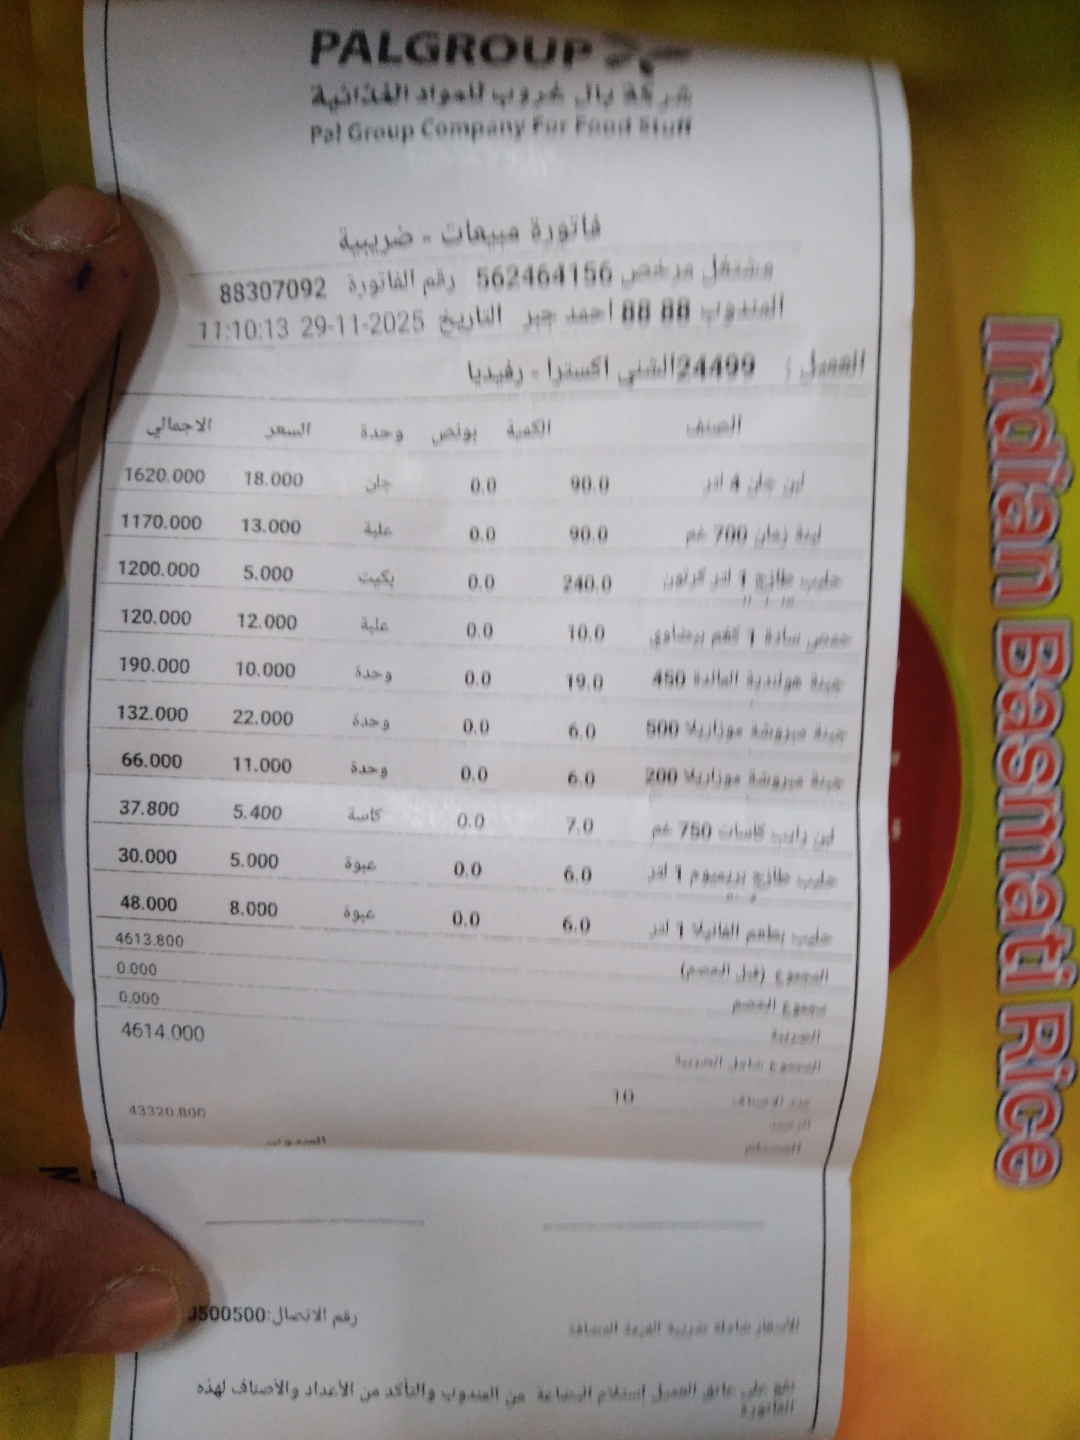 PALGROUP
شركة بال غروب للمواد الغذائية
Pal Group Company For Food Stuff
فاتورة مبيعات - ضريبية
مشتغل مرخص 562464156 رقم الفاتورة 88307092
المندوب 88 88 احمد جبر التاريخ 29-11-2025 11:10:13
العميل : 24499الشني اكسترا - رفيديا
الصنف الكمية بونص وحدة السعر الاجمالي
لبن جان 4 لتر 90.0 0.0 جلن 18.000 1620.000
لبنة زمان 700 غم 90.0 0.0 علبة 13.000 1170.000
حليب طازج 1 لتر كرتون 240.0 0.0 بكيت 5.000 1200.000
حمص سادة 1 كغم بيضاوي 10.0 0.0 علبة 12.000 120.000
جبنة هولندية المائدة 450 19.0 0.0 وحدة 10.000 190.000
جبنة مبروشة موزاريلا 500 6.0 0.0 وحدة 22.000 132.000
جبنة مبروشة موزاريلا 200 6.0 0.0 وحدة 11.000 66.000
لبن رايب كاسات 750 غم 7.0 0.0 كاسة 5.400 37.800
حليب طازج بريميوم 1 لتر 6.0 0.0 عبوة 5.000 30.000
حليب بطعم الفانيلا 1 لتر 6.0 0.0 عبوة 8.000 48.000
المجموع (قبل الخصم) 4613.800
مجموع الخصم 0.000
الضريبة 0.000
المجموع شامل الضريبة 4614.000
عدد الاصناف 10
الرصيد 43320.800
المستلم المندوب
رقم الاتصال:500500
الأسعار شاملة ضريبة القيمة المضافة
تقع على عاتق العميل استلام البضاعة من المندوب والتأكد من الأعداد والأصناف لهذه
الفاتورة
Indian Basmati Rice